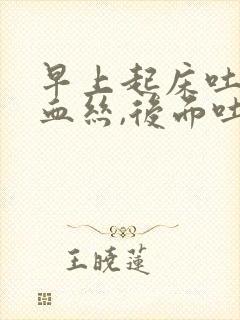 早上起床吐
血丝,後而吐
王晓莲